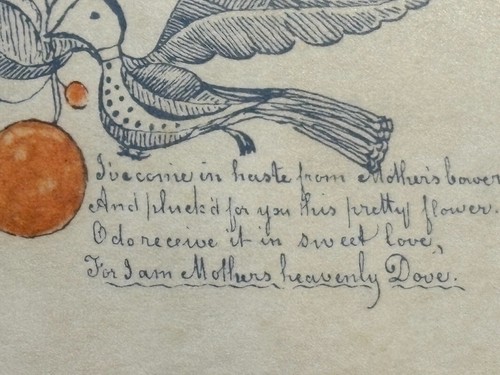 I've come in haste from Mother's bower
And pluck'd for you this pretty flower.
O do receive it in sweet love,
For I am Mothers heavenly Dove.